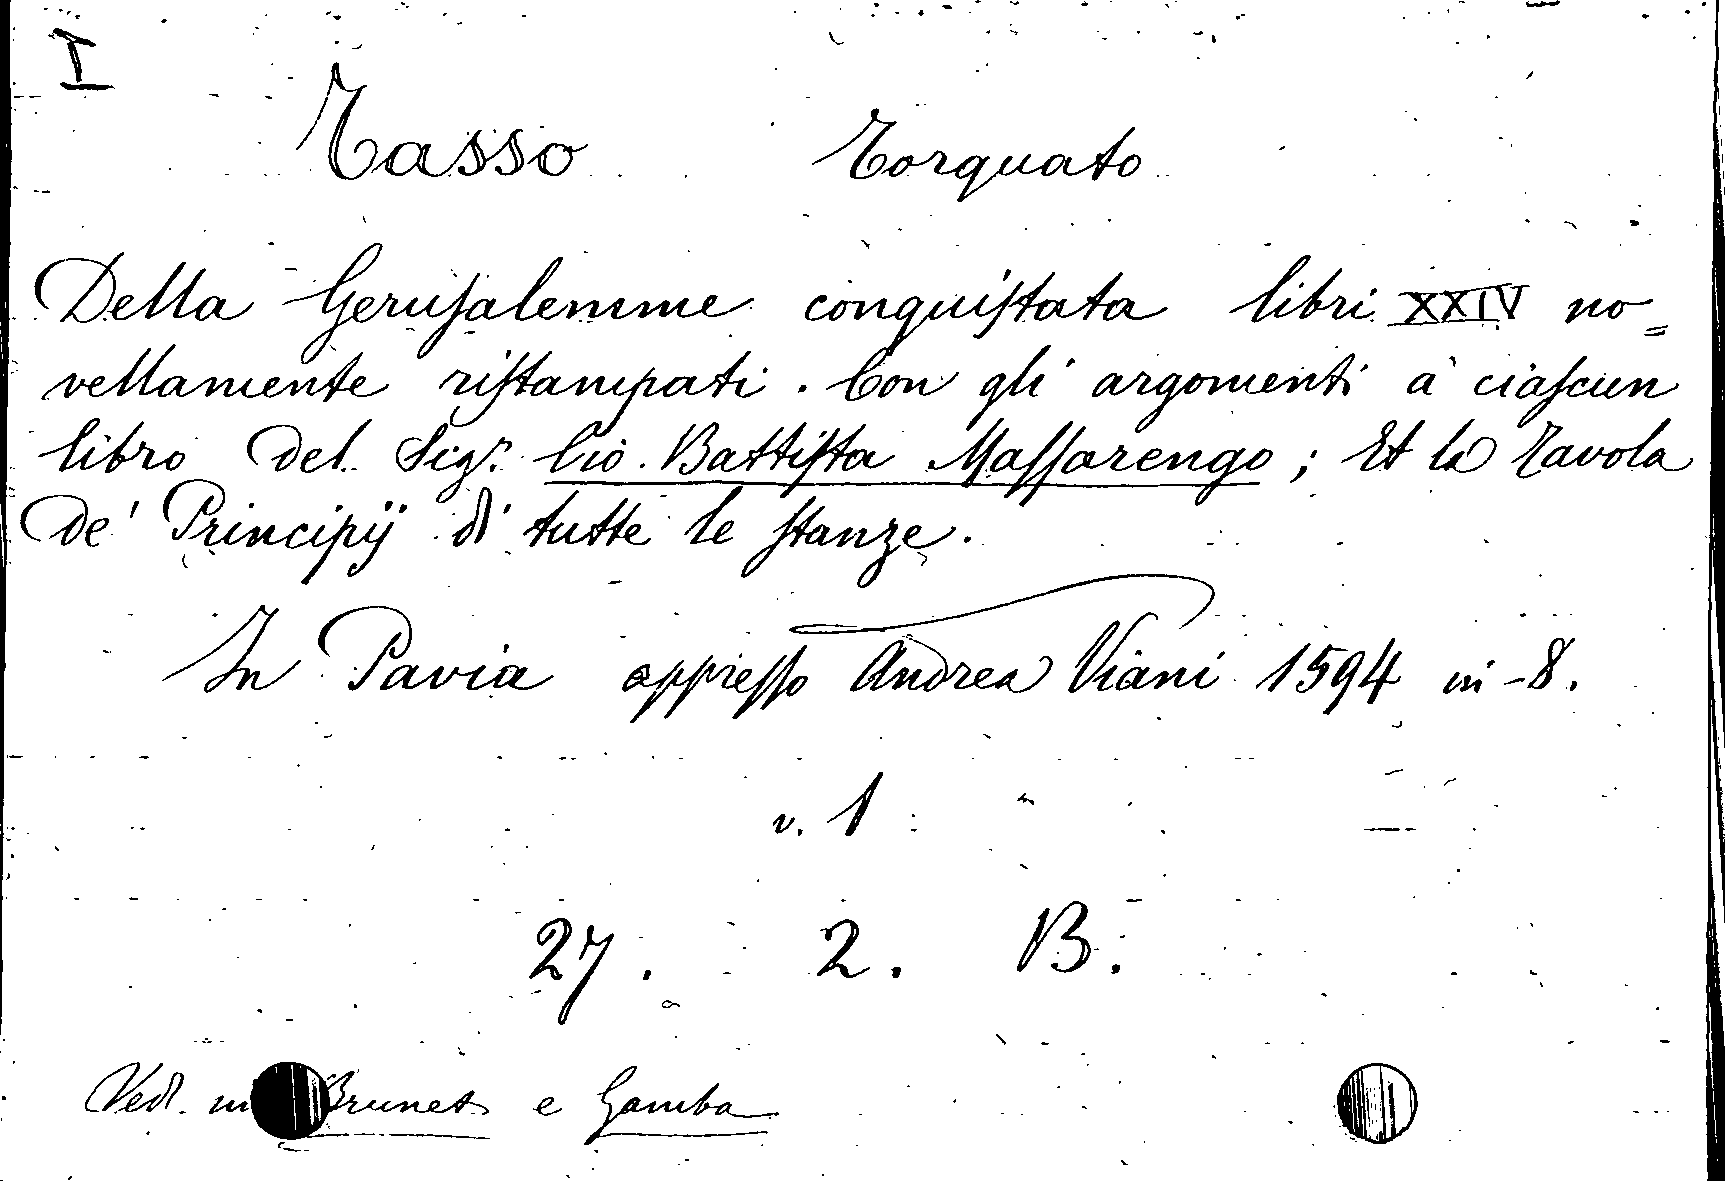 I
Tasso Torquato
Della Gerusalemme conquistata libri XXIV no=
vellamente ristampati. Con gli argomenti a ciascun
libro del Sigr. Gio. Battista Massarengo; Et la Tavola
de' Principij di tutte le stanze.
In Pavia appresso Andrea Viani 1594 in-8.
v. 1
27. 2. B.
Ved. in Brunet e Gamba